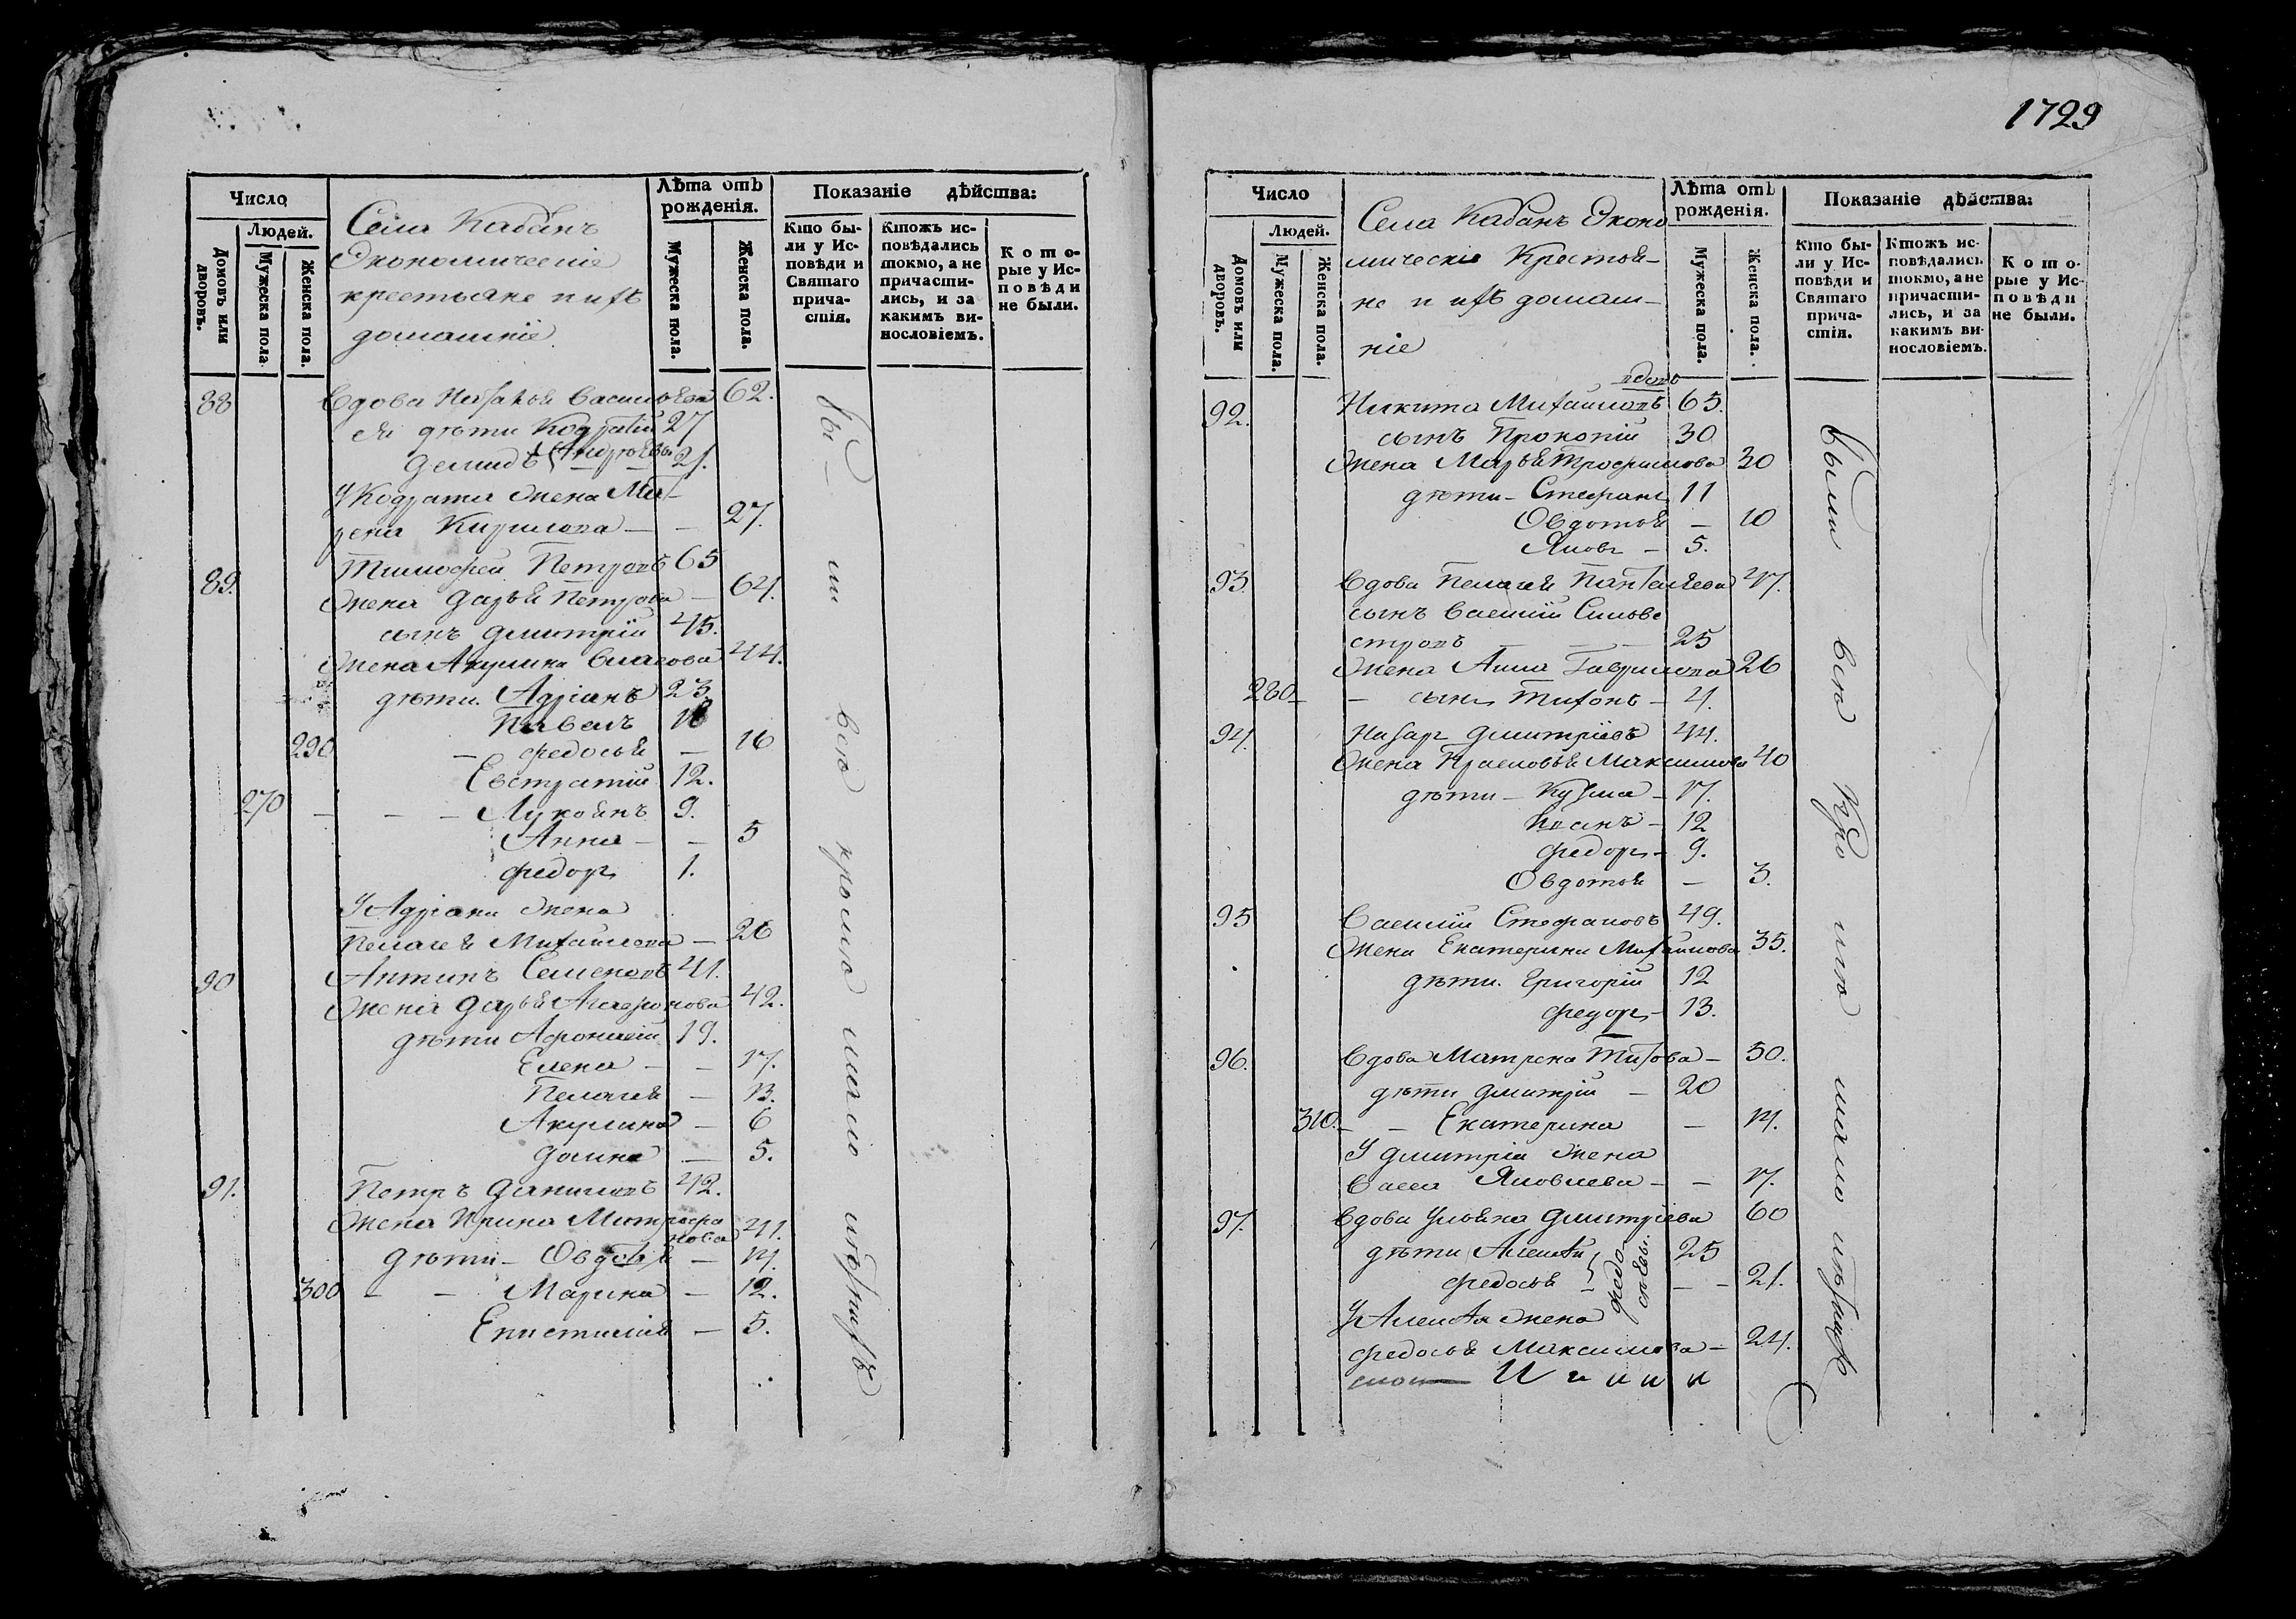 Число
Людей.
Домовъ или дворовъ.
Мужеска пола.
Женска пола.
Села Кабанъ
Экономическіе
крестьяне и ихъ
домашніе
Лѣта отъ
рожденія.
Мужеска пола.
Женска пола.
Показаніе дѣйства:
Кто бы-
ли у Ис-
повѣди и
Святаго
прича-
стія.
Ктожъ ис-
повѣдались
токмо, а не
причасти-
лись, и за
какимъ ви-
нословіемъ.
Кото-
рые у Ис-
повѣди
не были.
88 Вдова Наталья Васильева 62.
ея дѣти Кодратій 27
Демидъ Андреевы 21.
У Кодратья жена Ма-
рена Кирилова — — 27.
89. Тимофей Петровъ 65
Жена Дарья Петрова — 64.
сынъ Дмитрій 45.
Жена Акулина Власова 44.
дѣти. Адріанъ 23.
Павелъ 18
290 — Федосья — 16
Евстратій 12.
270 — — — Лукоянъ 9.
Анна — — 5
Федоръ 1.
У Адріана жена
Пелагея Михайлова — 26
90 Антипъ Семеновъ 41.
Жена Дарья Агафонова 42.
дѣти Афонасій 19.
Елена — — 17.
Пелагея — 13.
Акулина — 6
Домна — 5.
91. Петръ Даниловъ 42.
Жена Ирина Митрофа
нова 41.
дѣти — Овдотья — 14.
300 — — Марина — 12.
Епистимія — 5.
Бы — ли всѣ кромѣ мало лѣтнихъ
1729
Число
Людей.
Домовъ или дворовъ.
Мужеска пола.
Женска пола.
Села Кабанъ Эконо
мическіе Крестья-
не и ихъ домаш-
ніе
Лѣта отъ
рожденія.
Мужеска пола.
Женска пола.
Показаніе дѣйства:
Кто бы-
ли у Ис-
повѣди и
Святаго
прича-
стія.
Ктожъ ис-
повѣдались
токмо, а не
причасти-
лись, и за
какимъ ви-
нословіемъ.
Кото-
рые у Ис-
повѣди
не были.
вдовъ
92. Никита Михайловъ 65.
сынъ Прокопій 30
Жена Марья Трофимова 30
дѣти — Стефанъ 11
Овдотья — 10
Яковъ — 5.
93. Вдова Пелагея Панталѣева 47.
сынъ Василій Сильве
стровъ — — — 25
Жена Анна Гаврилова 26
280 — — сынъ Тихонъ — 4.
94. Назаръ Дмитріевъ 44.
Жена Прасковья Максимова 40
дѣти — Кузма — 17.
Иванъ — 12
Федоръ — 9.
Овдотья — 3.
95 Василій Стефановъ 49.
Жена Екатерина Михайлова 35.
дѣти. Григорій 12
Федоръ — 13.
96. Вдова Матрена Титова — 50.
дѣти Дмитрій — 20
310. — — Екатерина — 14.
У Дмитрія жена
Васса Яковлева — — 17.
97. Вдова Ульяна Дмитріева 60
дѣти Алексѣй 25
Федосья — — 21.
Федо
сѣевы.
У Алексѣя жена
Федосья Максимова — 24.
Были всѣ кро мѣ мало лѣтнихъ